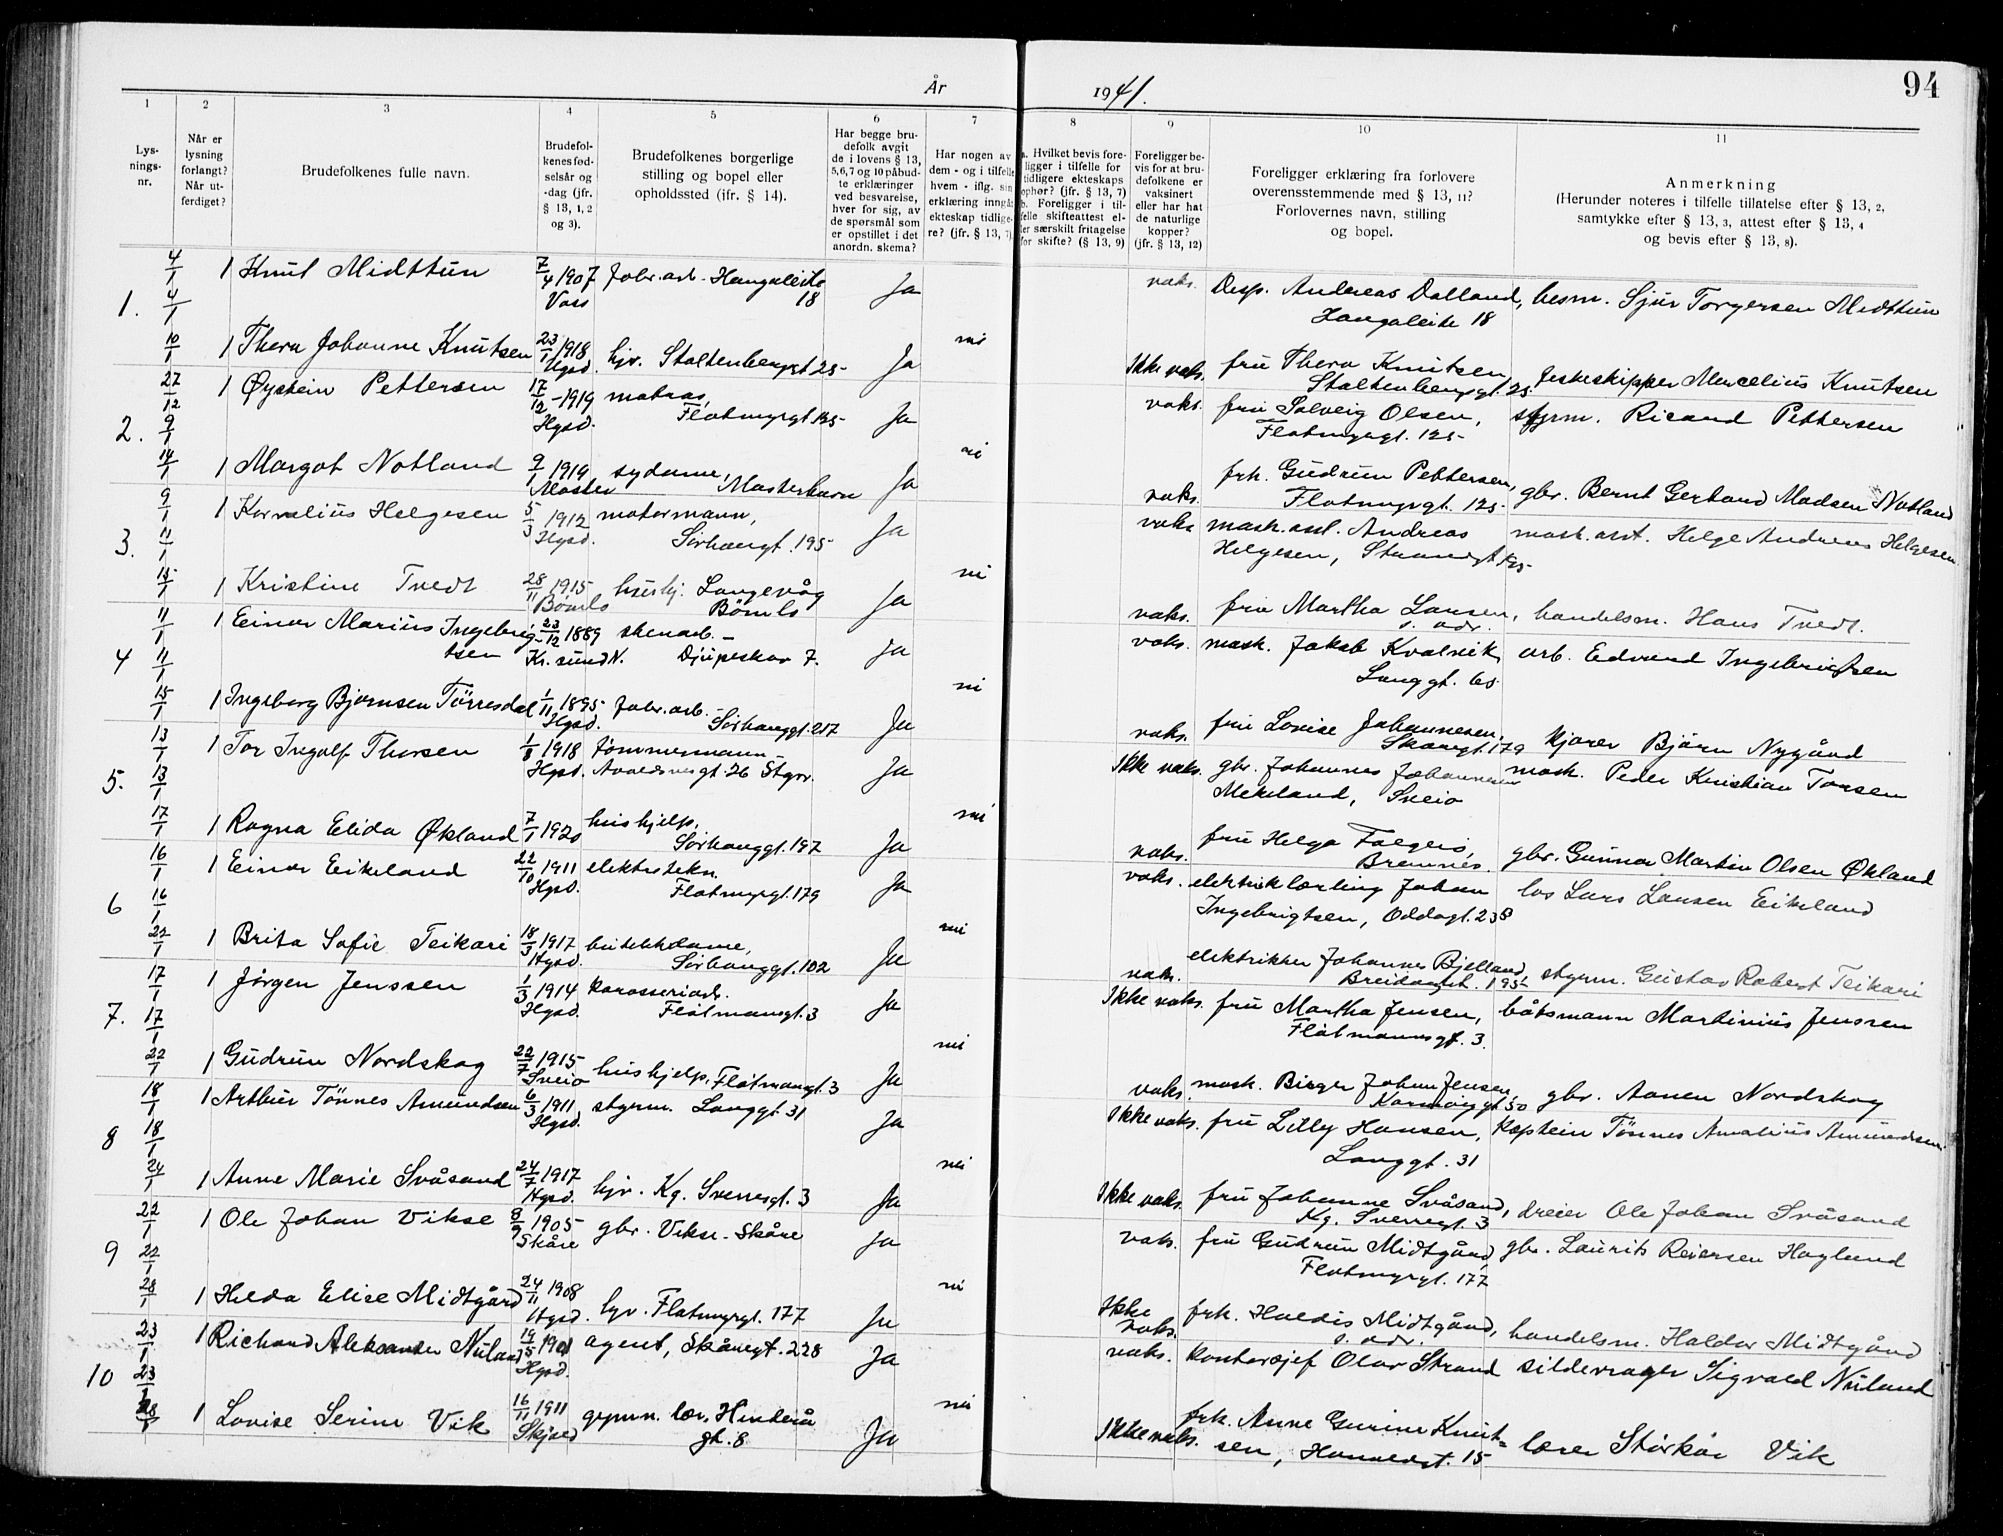 94
År 1941.
1 2 3 4 5 6 7 8 9 10 11
Lys-
nings-
nr.
Når er
lysning
forlangt?
Når ut-
ferdiget?
Brudefolkenes fulle navn.
Brudefol-
kenes fød-
selsår og
-dag (jfr.
§ 13, 1, 2
og 3).
Brudefolkenes borgerlige
stilling og bopel eller
opholdssted (jfr. § 14).
Har begge bru-
defolk avgit
de i lovens § 13,
5, 6, 7 og 10 påbud-
te erklæringer
ved besvarelse,
hver for sig, av
de spørsmål som
er opstillet i det
anordn. skema?
Har nogen av
dem - og i tilfelle
hvem - iflg. sin
erklæring inngått
ekteskap tidlige-
re? (jfr. § 13, 7)
a. Hvilket bevis fore-
ligger i tilfelle for
tidligere ekteskaps
ophør? (jfr. § 13, 7)
b. Foreligger i til-
felle skifteattest el-
ler særskilt fritagelse
for skifte? (§ 13, 9)
Foreligger be-
vis for at bru-
defolkene er
vaksinert
eller har hat
de naturlige
kopper?
(jfr. § 13, 12)
Foreligger erklæring fra forlovere
overensstemmende med § 13, 11?
Forlovernes navn, stilling
og bopel.
Anmerkning
(Herunder noteres i tilfelle tillatelse efter § 13, 2,
samtykke efter § 13, 3, attest efter § 13, 4
og bevis efter § 13, 8).
1. 4/1 4/1 1 Knut Midttun 7/4 1907 Voss Fabr.arb. Hangaleite 18 Ja vaks. Desp. Andreas Dalland, Hangaleite 18 besm. Sjur Torgersen Midttun
10/1 1 Thera Johanne Knutsen 23/1 1918 Hgsd. hjv. Stoltenberggt 25 Ja nei Ikke vaks. fru Thera Knutsen, Stoltenberggt. 25 feskeskipper Marcelius Knutsen
2. 27/12 9/1 1 Øystein Pettersen 17/12 1919 Hgsd. matros, Flotmyrgt 125 Ja vaks. fru Solveig Olsen, Flotmyrgt. 125 styrm. Ricard Pettersen
14/1 1 Margot Notland 9/1 1919 Moster sydame, Mosterhavn Ja nei vaks. frk. Gudrun Pettersen, Flotmyrgt. 125 gbr. Bernt Gerhard Madsen Notland
3. 9/1 11/1 1 Kornelius Helgesen 5/3 1912 Hgsd. motormann, Sørhauggt. 195 Ja vaks mask.asst. Andreas Helgesen, Strandgt 195 mask.asst. Helge Andreas Helgesen
15/1 1 Kristine Tvedt 28/11 1915 Bömlo hushj. Langevåg Bömlo Ja nei vaks. fru Martha Larsen, s. adr. handelsm. Hans Tvedt.
4 11/1 11/1 1 Einar Marius Ingebrigtsen 23/12 1889 Kr.sund N. skenarb. Djupeskar 7. Ja vaks. mask. Jakob Kvalvik, Langgt. 65 arb. Edvard Ingebrigtsen
15/1 1 Ingeborg Bjornsen Törresdal 1/11 1895 Hgsd. Fabr.arb. Sørhauggt. 217 Ja nei vaks. fru Lovise Johannesen, Skåregt. 179 kjører Björn Nygård
5. 13/1 13/1 1 Tor Ingolf Thorsen 1/8 1918 Hgsd. tömmermann Avaldsnesgt. 26 Ja Ikke vaks. gbr. Johannes Johannesen Mekeland, Sveio mask. Peder Kristian Torsen
17/1 1 Ragna Elida Økland 7/1 1920 hushjelp, Sørhauggt. 197 Ja nei vaks. fru Helga Folgerø, Bremnes gbr. Gunnar Martin Olsen Økland
6 16/1 16/1 1 Einar Eikeland 22/10 1911 Hgsd. elektrotekn. Flotmyrgt. 179 Ja vaks. elektriklærling Johan Ingebrigtsen, Oddagt. 238 los Lars Larsen Eikeland
22/1 1 Brita Sofie Teikari 18/3 1917 Hgsd. butikkdame, Sørhauggt. 102 Ja nei vaks. elektriker Johannes Bjelland, Breidablikgt. 195 styrm. Gustav Robert Teikari
7. 17/1 17/1 1 Jörgen Jenssen 1/3 1914 Hgsd. karosseriarb. Flotmannsgt. 3 Ja Ikke vaks. fru Martha Jensen, Flotmannsgt. 3. båtsmann Martinius Jenssen
22/1 1 Gudrun Nordskog 22/7 1915 Sveio hushjelp, Flotmannsgt. 3 Ja nei vaks. mask. Birger Johan Jensen, Karmöygt. 50 gbr. Aanen Nordskog
8 18/1 18/1 1 Arthur Tönnes Amundsen 6/3 1911 Hgsd. styrm. Langgt. 31 Ja Ikke vaks. fru Lilly Hansen, Langgt. 31 kaptein Tönnes Amalius Amundsen
24/1 1 Anne Marie Svåsand 24/7 1917 Hgsd. hjv. Kg. Sverresgt. 3 Ja nei Ikke vaks. fru Johanne Svåsand, Kg. Sverregt. 3 dreier Ole Johan Svåsand
9 22/1 22/1 1 Ole Johan Vikse 8/9 1905 Skåre gbr. Vikse. Skåre Ja vaks. fru Gudrun Midtgård, Flotmyrgt. 177 gbr. Laurits Reiersen Hagland
28/1 1 Helda Elise Midtgård 24/11 1908 Hgsd. hjv. Flotmyrgt. 177 Ja nei Ikke vaks. frk. Haldis Midtgård, s. adr. handelsm. Haldor Midtgård
10 23/1 23/1 1 Richard Aleksander Nuland 19/5 1901 Hgsd. agent, Skåregt. 228 Ja vaks. kontorsjef Olav Strand sildevrager Sigvald Nuland
28/1 1 Lovise Serine Vik 16/11 1911 Skjold gymn. lær. Hinderå gt. 8 Ja nei Ikke vaks. frk. Anne Gurine Knutsen, Haraldsgt. 15 lærer Störkår Vik